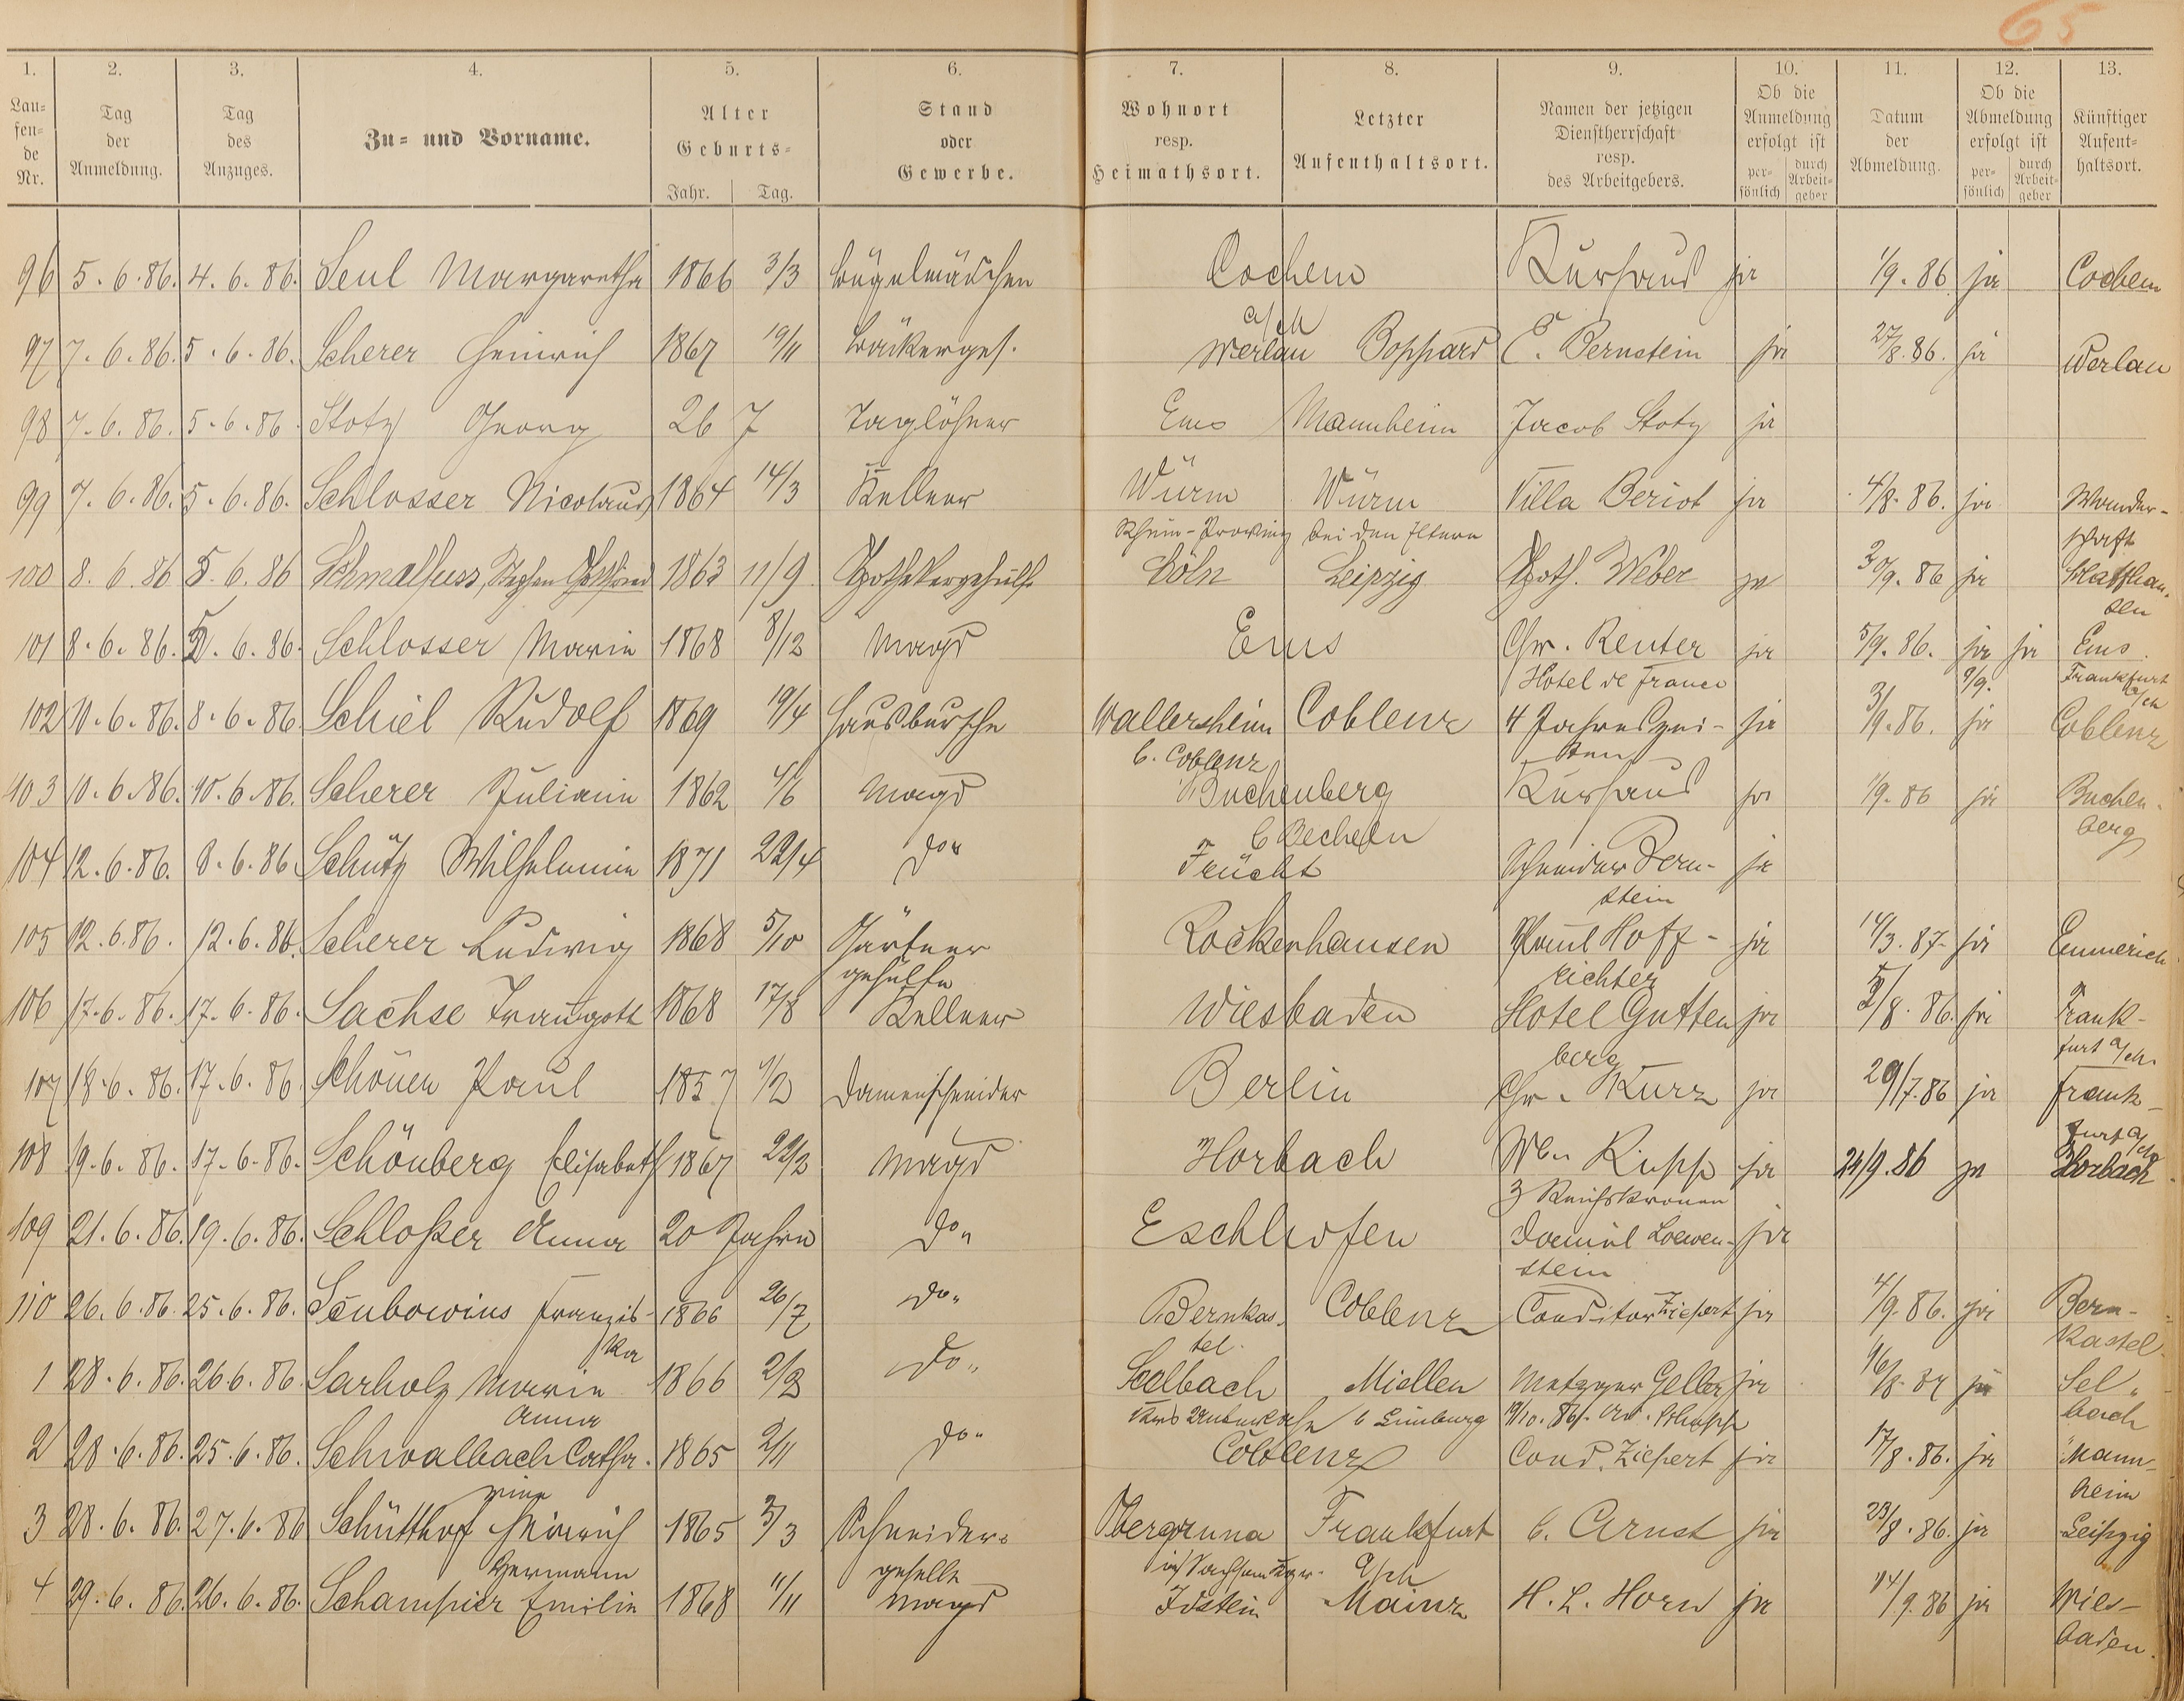 65
1. 2. 3. 4. 5. 6. 7. 8. 9. 10. 11. 12. 13.
Lau-
fen-
de
Nr.
Tag
der
Anmeldung.
Tag
des
Anzuges.
Zu- und Vorname.
Alter
Geburts-
Jahr. Tag.
Stand
oder
Gewerbe.
Wohnort
resp.
Heimathsort.
Letzter
Aufenthaltsort.
Namen der jetzigen
Dienstherrschaft
resp.
des Arbeitgebers.
Ob die
Anmeldung
erfolgt ist
per-
sönlich
durch
Arbeit-
geber
Datum
der
Abmeldung.
Ob die
Abmeldung
erfolgt ist
per-
sönlich
durch
Arbeit-
geber
Künftiger
Aufent-
haltsort.
96 5.6.86. 4.6.86. Seul Margaretha 1866 3/3 Bügelmädchen Cochem Kurhaus ja 1/9.86 ja Cochem
a/M
97 7.6.86. 5.6.86. Scherer Heinrich 1867 19/11 Bäckerges. Werlau Boppard C. Bernstein ja 27/8.86. ja Werlau
98 7.6.86. 5.6.86. Stotz Georg 26 J Taglöhner Ems Mannheim Jacob Stotz ja
99 7.6.86. 5.6.86. Schlosser Nicolaus 1864 14/3 Kellner Würm Würm Villa Beriot ja 4/8.86. ja Wander-
Rhein-Provinz bei den Eltern schaft
100 8.6.86 5.6.86 Schmalfuss, Stephan 1863 11/9 Apothekergehülfe Cöln Leipzig Apoth. Weber ja 30/9.86 ja
101 8.6.86. 5.6.86. Schlosser Marie 1868 8/12 Magd Ems Chr. Reuter ja 5/9.86. ja ja Ems
Hotel de France 9/9. Frankfurt
102 10.6.86. 8.6.86. Schiel Rudolf 1869 19/4 Hausbursche Wallersheim Coblenz 4 Jahreszei- ja 3/9.86. ja Coblenz
b. Coblenz ten
103 10.6.86. 10.6.86. Scherer Juliane 1862 4/6 Magd Buchenberg Kurhaus ja 1/9.86 ja Buchen-
b Becheln berg
104 12.6.86. 8.6.86 Schütz Wilhelmine 1871 22/4 do" Frücht Schneider Bern- ja
stein
105 12.6.86. 12.6.86. Scherer Ludwig 1868 5/10 Gärtner Rockenhausen Paul Hoff- ja 14/3.87. ja Emmerich
gehülfe richter
106 17.6.86. 17.6.86. Sachse Traugott 1868 17/8 Kellner Wiesbaden Hotel Gutten ja 5/8.86. ja Frank-
berg furt a/M.
107 18.6.86. 17.6.86. Schönen Paul 1857 1/2 Damenschneider Berlin Chr. Kurz ja 29/7.86 ja Frank-
furt a/M
108 19.6.86. 17.6.86. Schönberg Elisabeth 1867 22/2 Magd Horbach Wb. Rupp ja 24/9.86 ja Horbach
3 Reichskronen
109 21.6.86. 19.6.86. Schloßer Anna 20 Jahre do" Eschhofen Daniel Loewen- ja
stein
110 26.6.86. 25.6.86. Franzis- 1866 26/7 do" Bernkas- Coblenz Conditor Ziepert ja 4/9.86. ja Bern-
ka tel. kastel
1 28.6.86. 26.6.86. Sarholz Marie 1866 2/2 do" Seelbach Miellen Metzger Geller ja 16/8.87 ja Sel"
Anna b Limburg bach
2 28.6.86. 25.6.86. Schwalbach Catha- 1865 2/11 do" Coblenz Cond. Ziepert ja 17/8.86. ja Mann-
rine heim
3 28.6.86. 27.6.86 Schütthof Heinrich 1865 3/3 Schneider- Obergruna Frankfurt C. Arnst ja 23/8.86. ja Leipzig
Hermann geselle a/M
4 29.6.86. 26.6.86. Schampier Emilie 1868 11/11 Magd Idstein Mainz H. L. Horn ja 14/9.86 ja Wies-
baden.